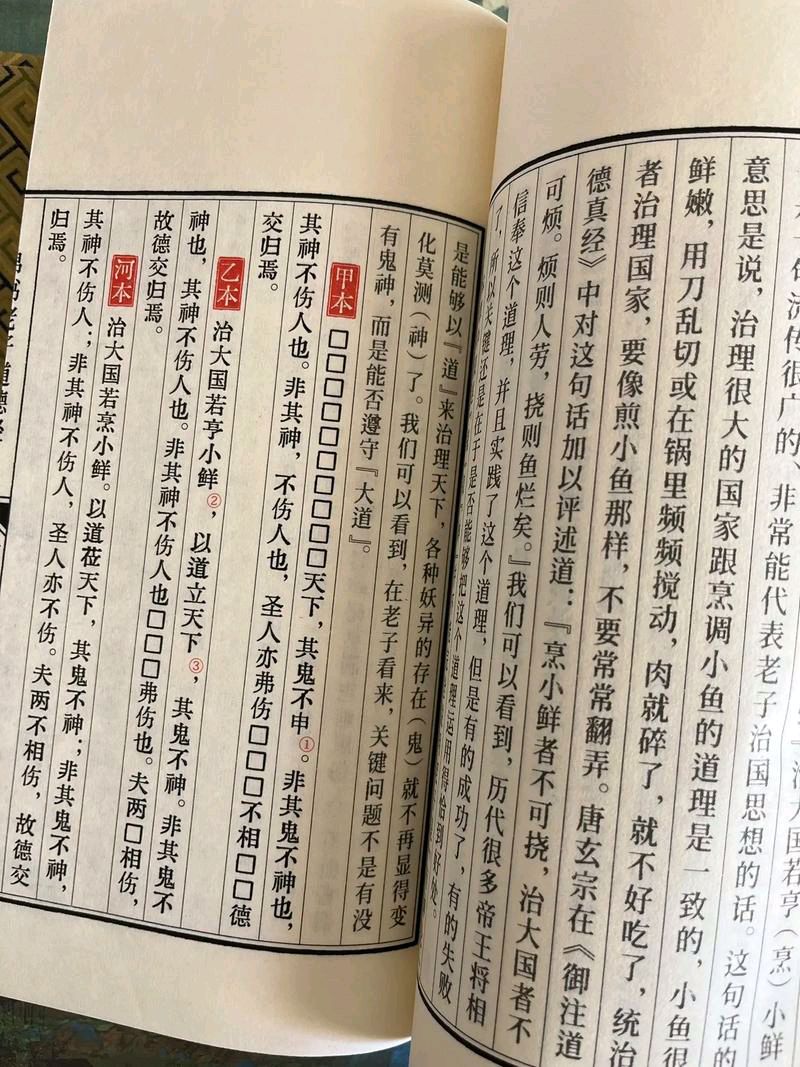 治大国若亨（烹）小鲜
句流传很广的、非常能代表老子治国思想的话。这句话的
意思是说，治理很大的国家跟烹调小鱼的道理是一致的，小鱼很
鲜嫩，用刀乱切或在锅里频频搅动，肉就碎了，就不好吃了，统治
者治理国家，要像煎小鱼那样，不要常常翻弄。唐玄宗在《御注道
德真经》中对这句话加以评述道：『烹小鲜者不可挠，治大国者不
可烦。烦则人劳，挠则鱼烂矣。』我们可以看到，历代很多帝王将相
信奉这个道理，并且实践了这个道理，但是有的成功了，有的失败
了，所以关键还是在于是否能够把这个道理运用得恰到好处。
是能够以『道』来治理天下，各种妖异的存在（鬼）就不再显得变
化莫测（神）了。我们可以看到，在老子看来，关键问题不是有没
有鬼神，而是能否遵守『大道』。
甲本 □□□□□□□□□□天下，其鬼不申①。非其鬼不神也，
其神不伤人也。非其神，不伤人也，圣人亦弗伤□□□不相□□德
交归焉。
乙本 治大国若亨小鲜②，以道立天下③，其鬼不神。非其鬼不
神也，其神不伤人也。非其神不伤人也□□□弗伤也。夫两□相伤，
故德交归焉。
河本 治大国若烹小鲜。以道莅天下，其鬼不神；非其鬼不神，
其神不伤人；非其神不伤人，圣人亦不伤。夫两不相伤，故德交
归焉。
帛书老子 道德经